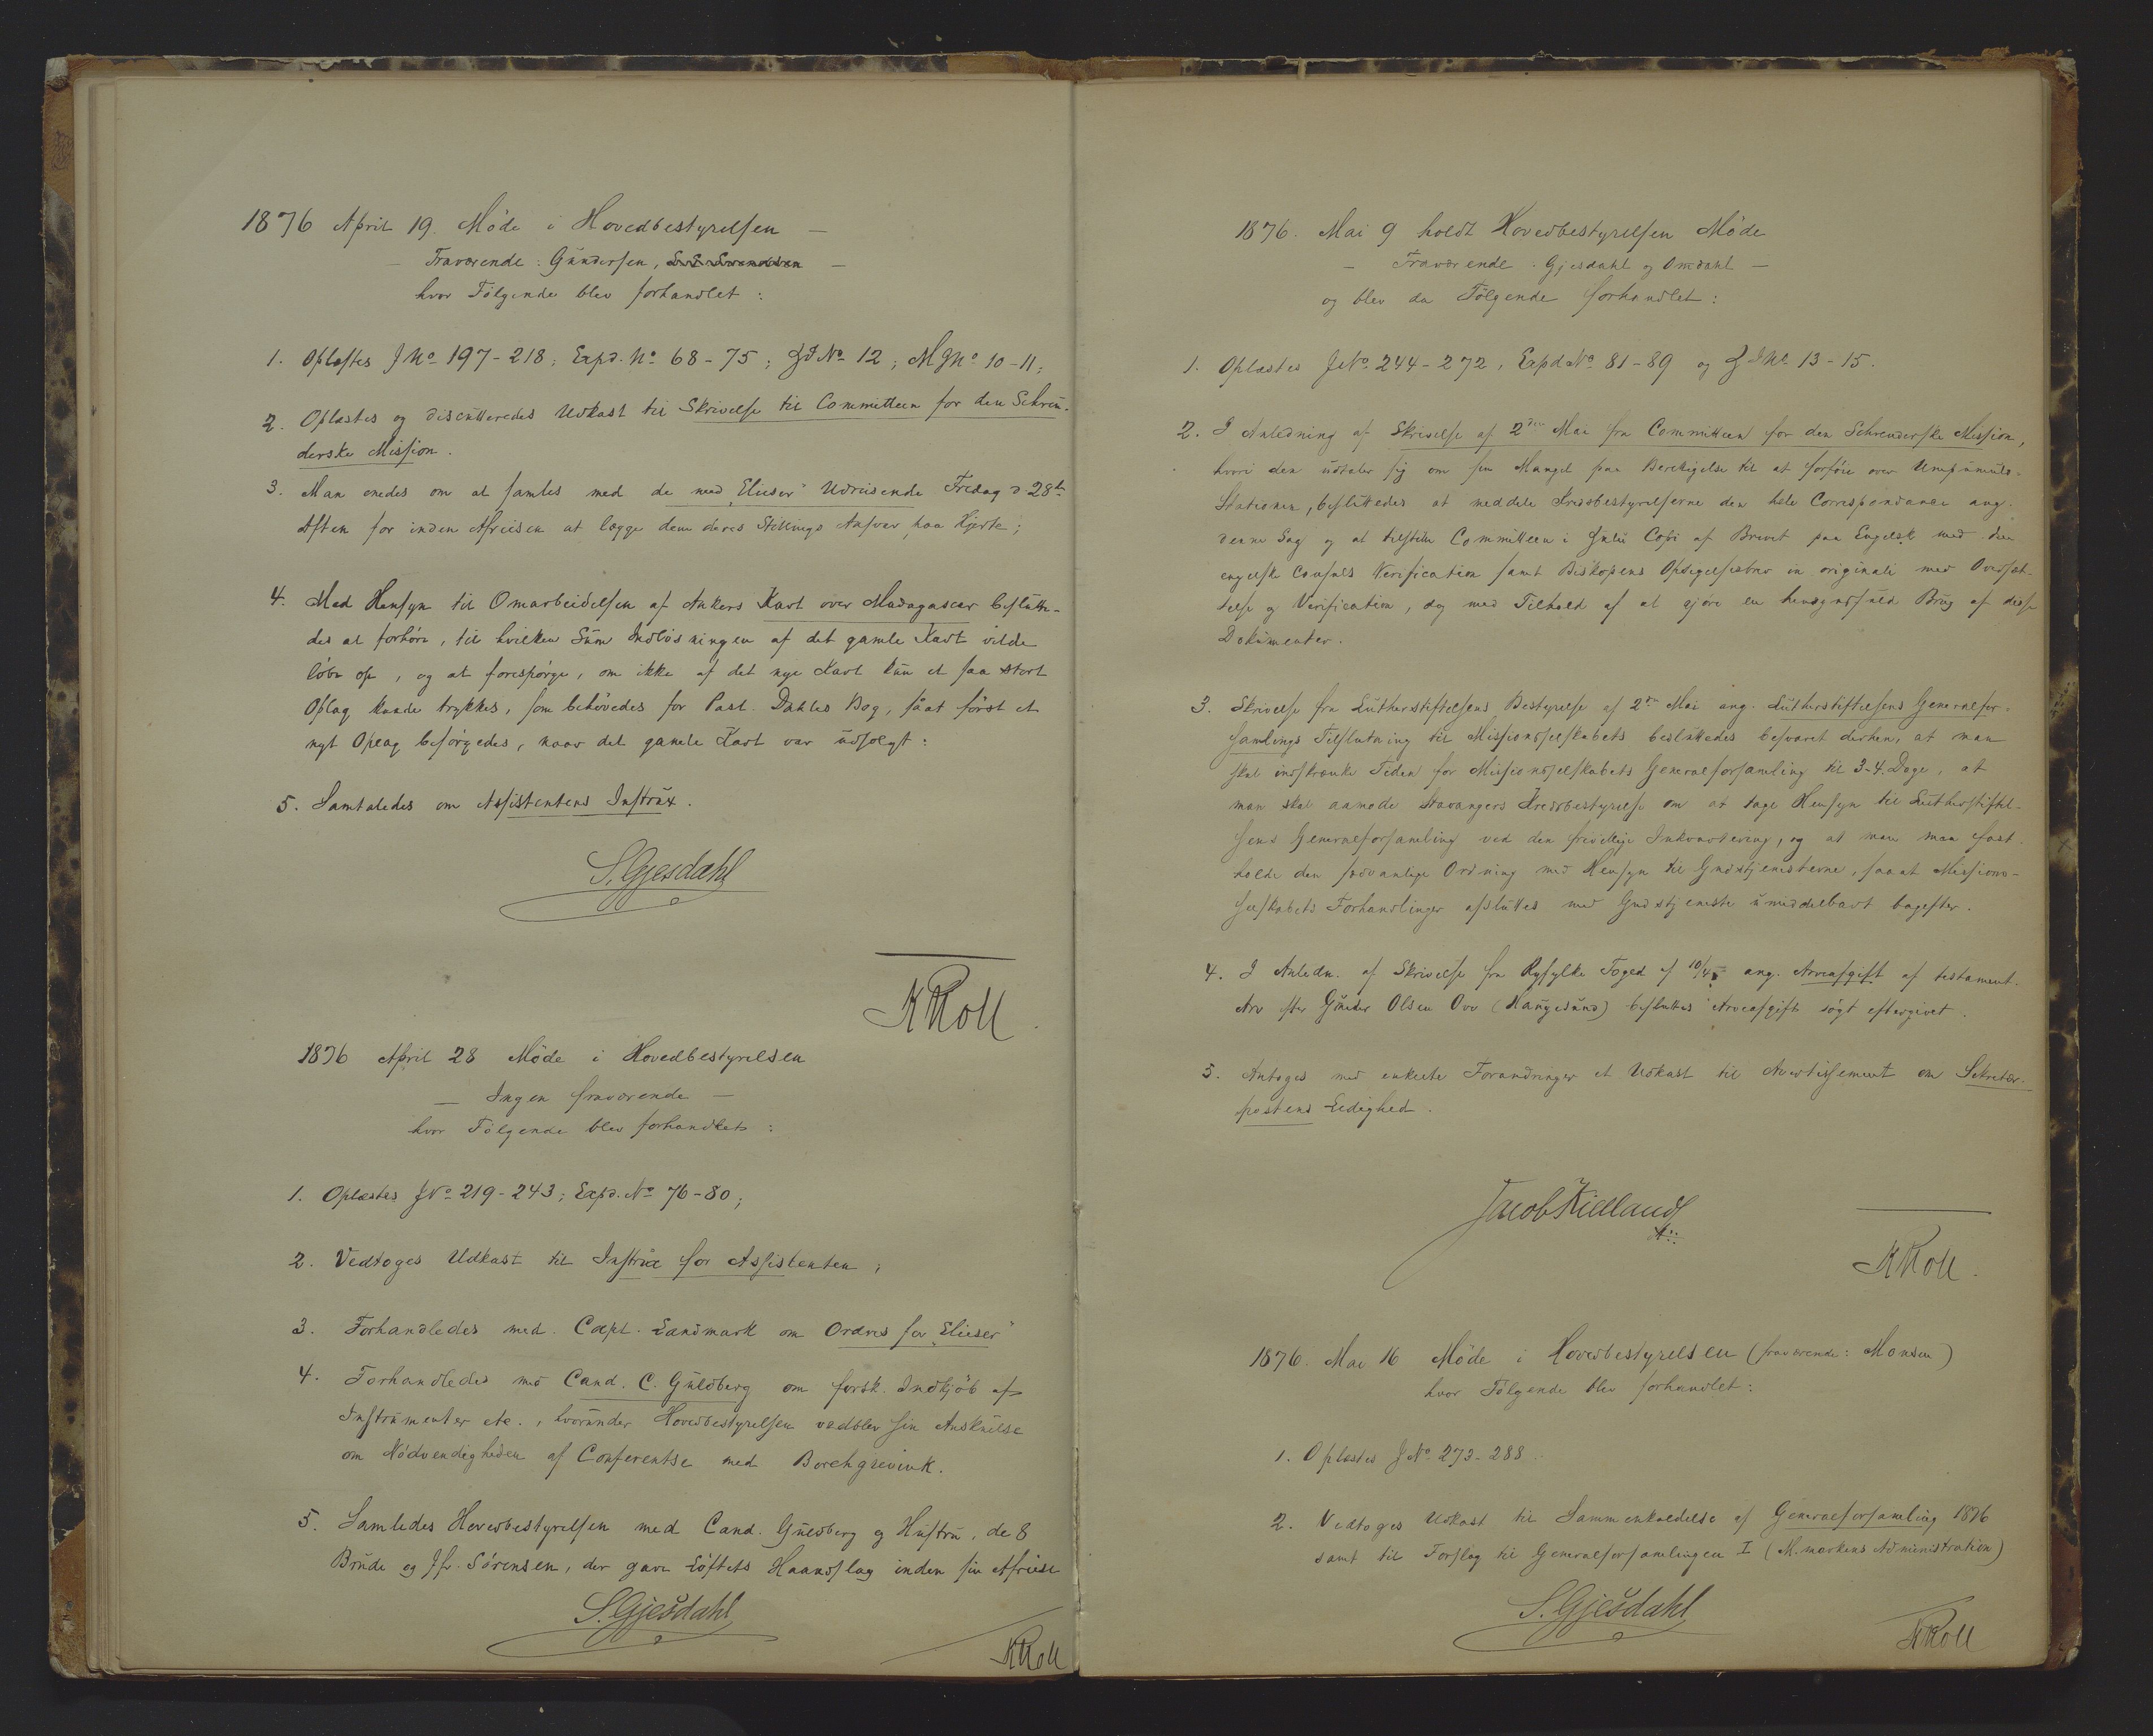 1876 April 19. Möde i Hovedbestyrelsen —
— Fraværende: Gundersen, S. E. Svendsen —
hvor Fölgende blev forhandlet:
1. Oplæstes J No 197-218; Expd. No 68-75; ZJ No 12; MJ No 10-11;
2. Oplæstes og discutteredes Udkast til Skrivelse til Committeen for den Schreu-
derske Mission.
3. Man enedes om at samles med de med "Elieser" Udreisende Fredag d 28de
Aften for inden Afreisen at lægge dem deres Stillings Ansvar paa Hjerte;
4. Med Hensyn til Omarbeidelsen af Ankers Kart over Madagascar beslutte-
des at forhöre, til hvilken Sum Indlösningen af det gamle Kart vilde
löbe op, og at forespörge, om ikke af det nye Kart kun et saa stort
Oplag kunde trykkes, som behövedes for Past. Dahles Bog, saat först et
nyt Oplag besörgedes, naar det gamle Kart var udsolgt:
5. Samtaledes om Assistentens Instrux.
S. Gjesdahl
KRoll.
1876 April 28 Möde i Hovedbestyrelsen
— Ingen fraværende —
hvor Fölgende blev forhandlet:
1. Oplæstes J No 219-243; Expd. No 76-80;
2. Vedtoges Udkast til Instrux for Assistenten;
3. Forhandledes med Capt. Landmark om Ordres for "Elieser"
4. Forhandledes med Cand. C. Guldberg om forsk. Indkjöb af
Instrumenter etc., hvorunder Hovedbestyrelsen vedblev sin Anskuelse
om Nödvendigheden af Conferentse med Borchgrevink.
5. Samledes Hovedbestyrelsen med Cand. Guldberg og Hustru, de 8
Brude og Jfr. Sörensen, der gave Löftets Haandslag inden sin Afreise
S. Gjesdahl
KRoll
1876. Mai 9 holdt Hovedbestyrelsen Möde
— Fraværende: Gjesdahl og Omdahl —
og blev da Fölgende forhandlet:
1. Oplæstes J No 244-272, Expd No 81-89 og ZJ No 13-15.
2. I Anledning af Skrivelse af 2den Mai fra Committeen for den Schreuderske Mission,
hvori den udtaler sig om sin Mangel paa Berettigelse til at forföie over Umpumulo-
Stationen, besluttedes at meddele Kredsbestyrelserne den hele Correspondance ang.
denne Sag og at tilstille Committeen i Juli Copi af Brevet paa Engelsk med den
engelske Consuls Verification samt Biskopens Opsigelsesbrev in originali med Oversæt-
telse og Verification, dog med Tilhold af at gjöre en hensynsfuld Brug af disse
Dokumenter.
3. Skrivelse fra Lutherstiftelsens Bestyrelse af 2den Mai ang. Lutherstiftelsens Generalfor-
samlings Tilslutning til Missionsselskabets besluttedes besvaret derhen, at man
skal indskrænke Tiden for Missionsselskabets Generalforsamling til 3-4 Dage, at
man skal anmode Stavangers Kredsbestyrelse om at tage Hensyn til Lutherstiftel-
sens Generalforsamling ved den frivillige Inkvartering, og at man maa fast-
holde den sædvanlige Ordning med Hensyn til Gudstjenesterne, saaat Missions-
selskabets Forhandlinger afsluttes med Gudstjeneste umiddelbart bagefter.
4. I Anledn. af Skrivelse fra Ryfylke Foged af 10/4 ang. Arveafgift af testament.
Arv efter Gunder Olsen (Haugesund) besluttes Arveafgift sögt eftergivet.
5. Antoges med enkelte Forandringer et Udkast til Avertissement om Sekretær-
postens Ledighed.
Jacob Kielland
KRoll.
1876. Mai 16 Möde i Hovedbestyrelsen (fraværende: Monsen)
hvor Fölgende blev forhandlet:
1. Oplæstes J No 273-288.
2. Vedtoges Udkast til Sammenkaldelse af Generalforsamling 1876
samt til Forslag til Generalforsamlingen I (M. markens Administration)
S. Gjesdahl
KRoll